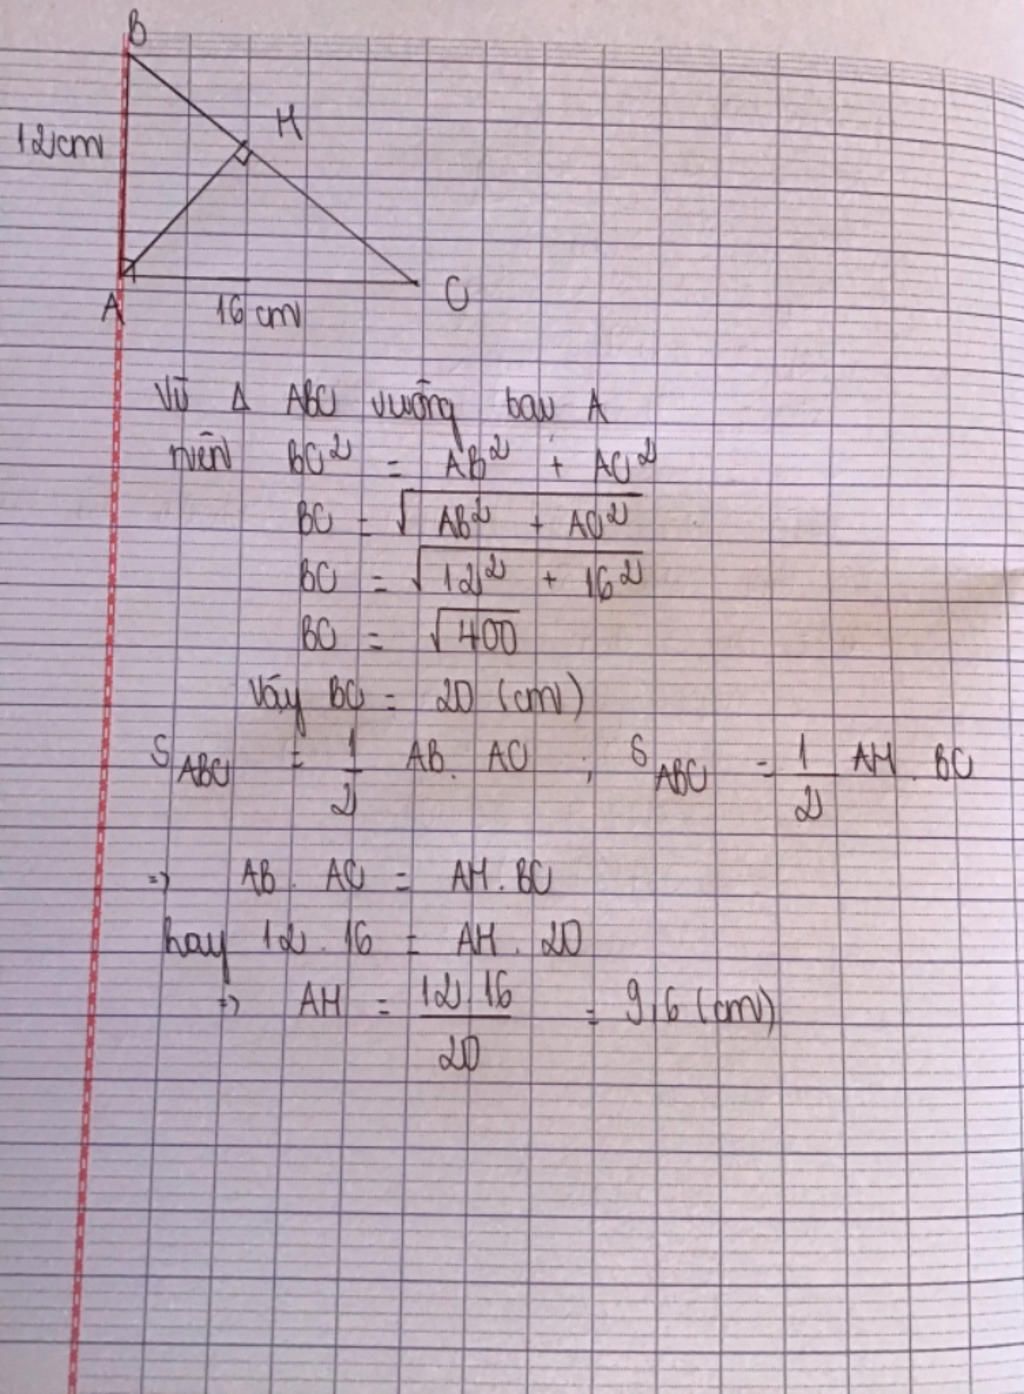 B
H
12cm
A
16 cm
C
Vì Δ ABC vuông tại A
nên BC² = AB² + AC²
BC = √(AB² + AC²)
BC = √(12² + 16²)
BC = √400
Vậy BC = 20 (cm)
S_ABC = 1/2 AB. AC ; S_ABC = 1/2 AH . BC
=> AB . AC = AH . BC
hay 12 . 16 = AH . 20
=> AH = 12.16/20 = 9,6 (cm)